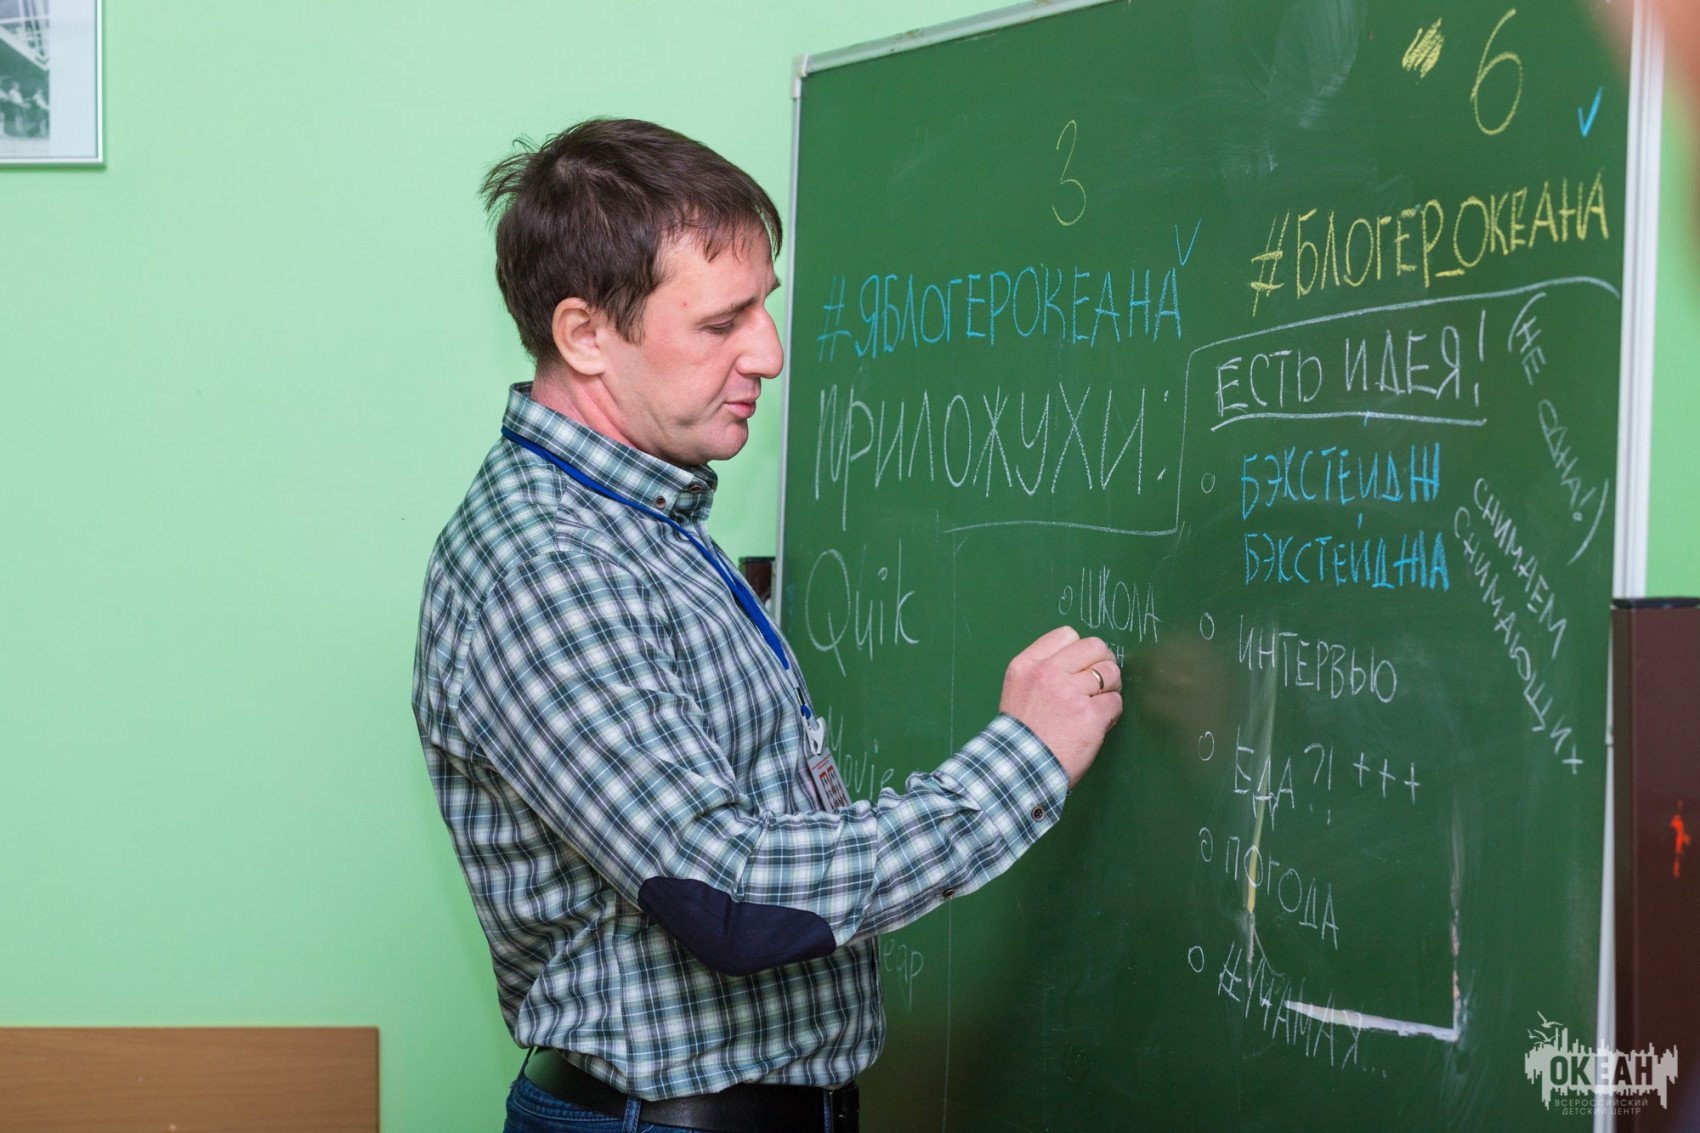 3
6
#ЯБЛОГЕРОКЕАНА
#БЛОГЕР_ОКЕАНА
ПРИЛОЖУХИ:
Quik
Movie
ШКОЛА
ЕСТЬ ИДЕЯ!
(НЕ ОДНА!)
БЭКСТЕЙДЖ
БЭКСТЕЙДЖА
СНИМАЕМ
СНИМАЮЩИХ
ИНТЕРВЬЮ
ЕДА?! +++
ПОГОДА
#ЯМАМАЯ...
ОКЕАН
ВСЕРОССИЙСКИЙ
ДЕТСКИЙ ЦЕНТР